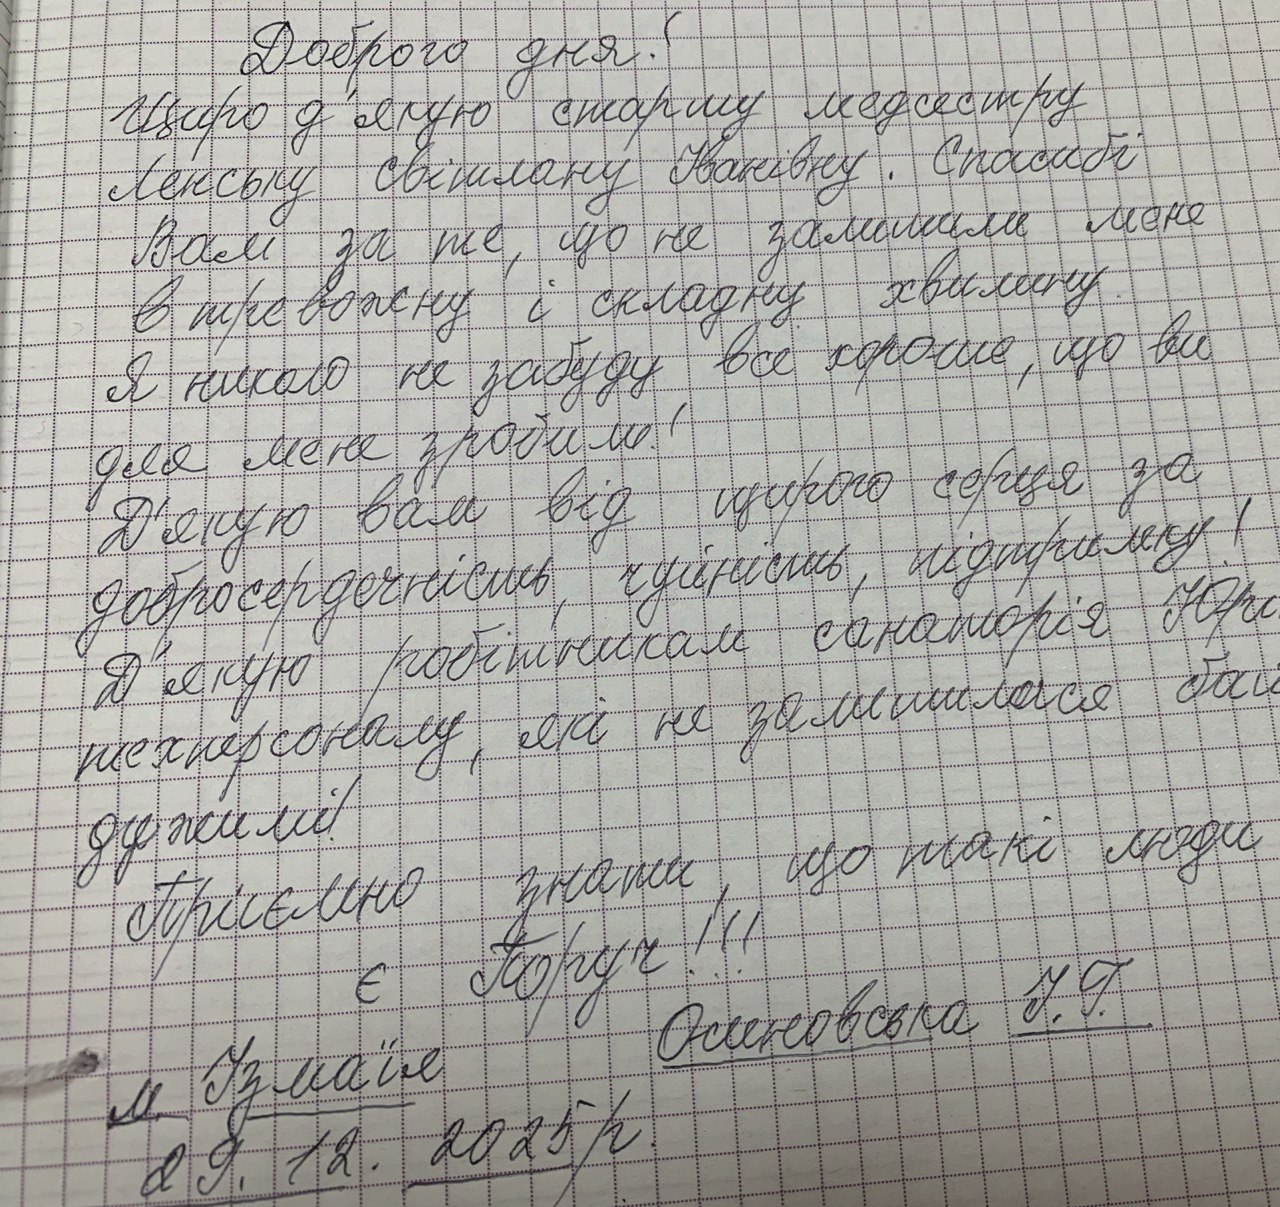 Доброго дня!
Щиро д'якую старшу медсестру
Ленську Світлану Іванівну. Спасибі
Вам за те, що не залишили мене
в тревожну і складну хвилину.
Я николо не забуду все хороше, що ви
для мене зробили!
Д'якую вам від щирого серця за
добросердечність, чуйність, підтримку!
Д'якую робітникам санаторія Юрі
техперсоналу, які не залишилися бай
дужими!
Приємно знати, що такі люди
є Поруч!!!
Осиновська І.Г.
м. Ізмаїл
29.12.2025 р.